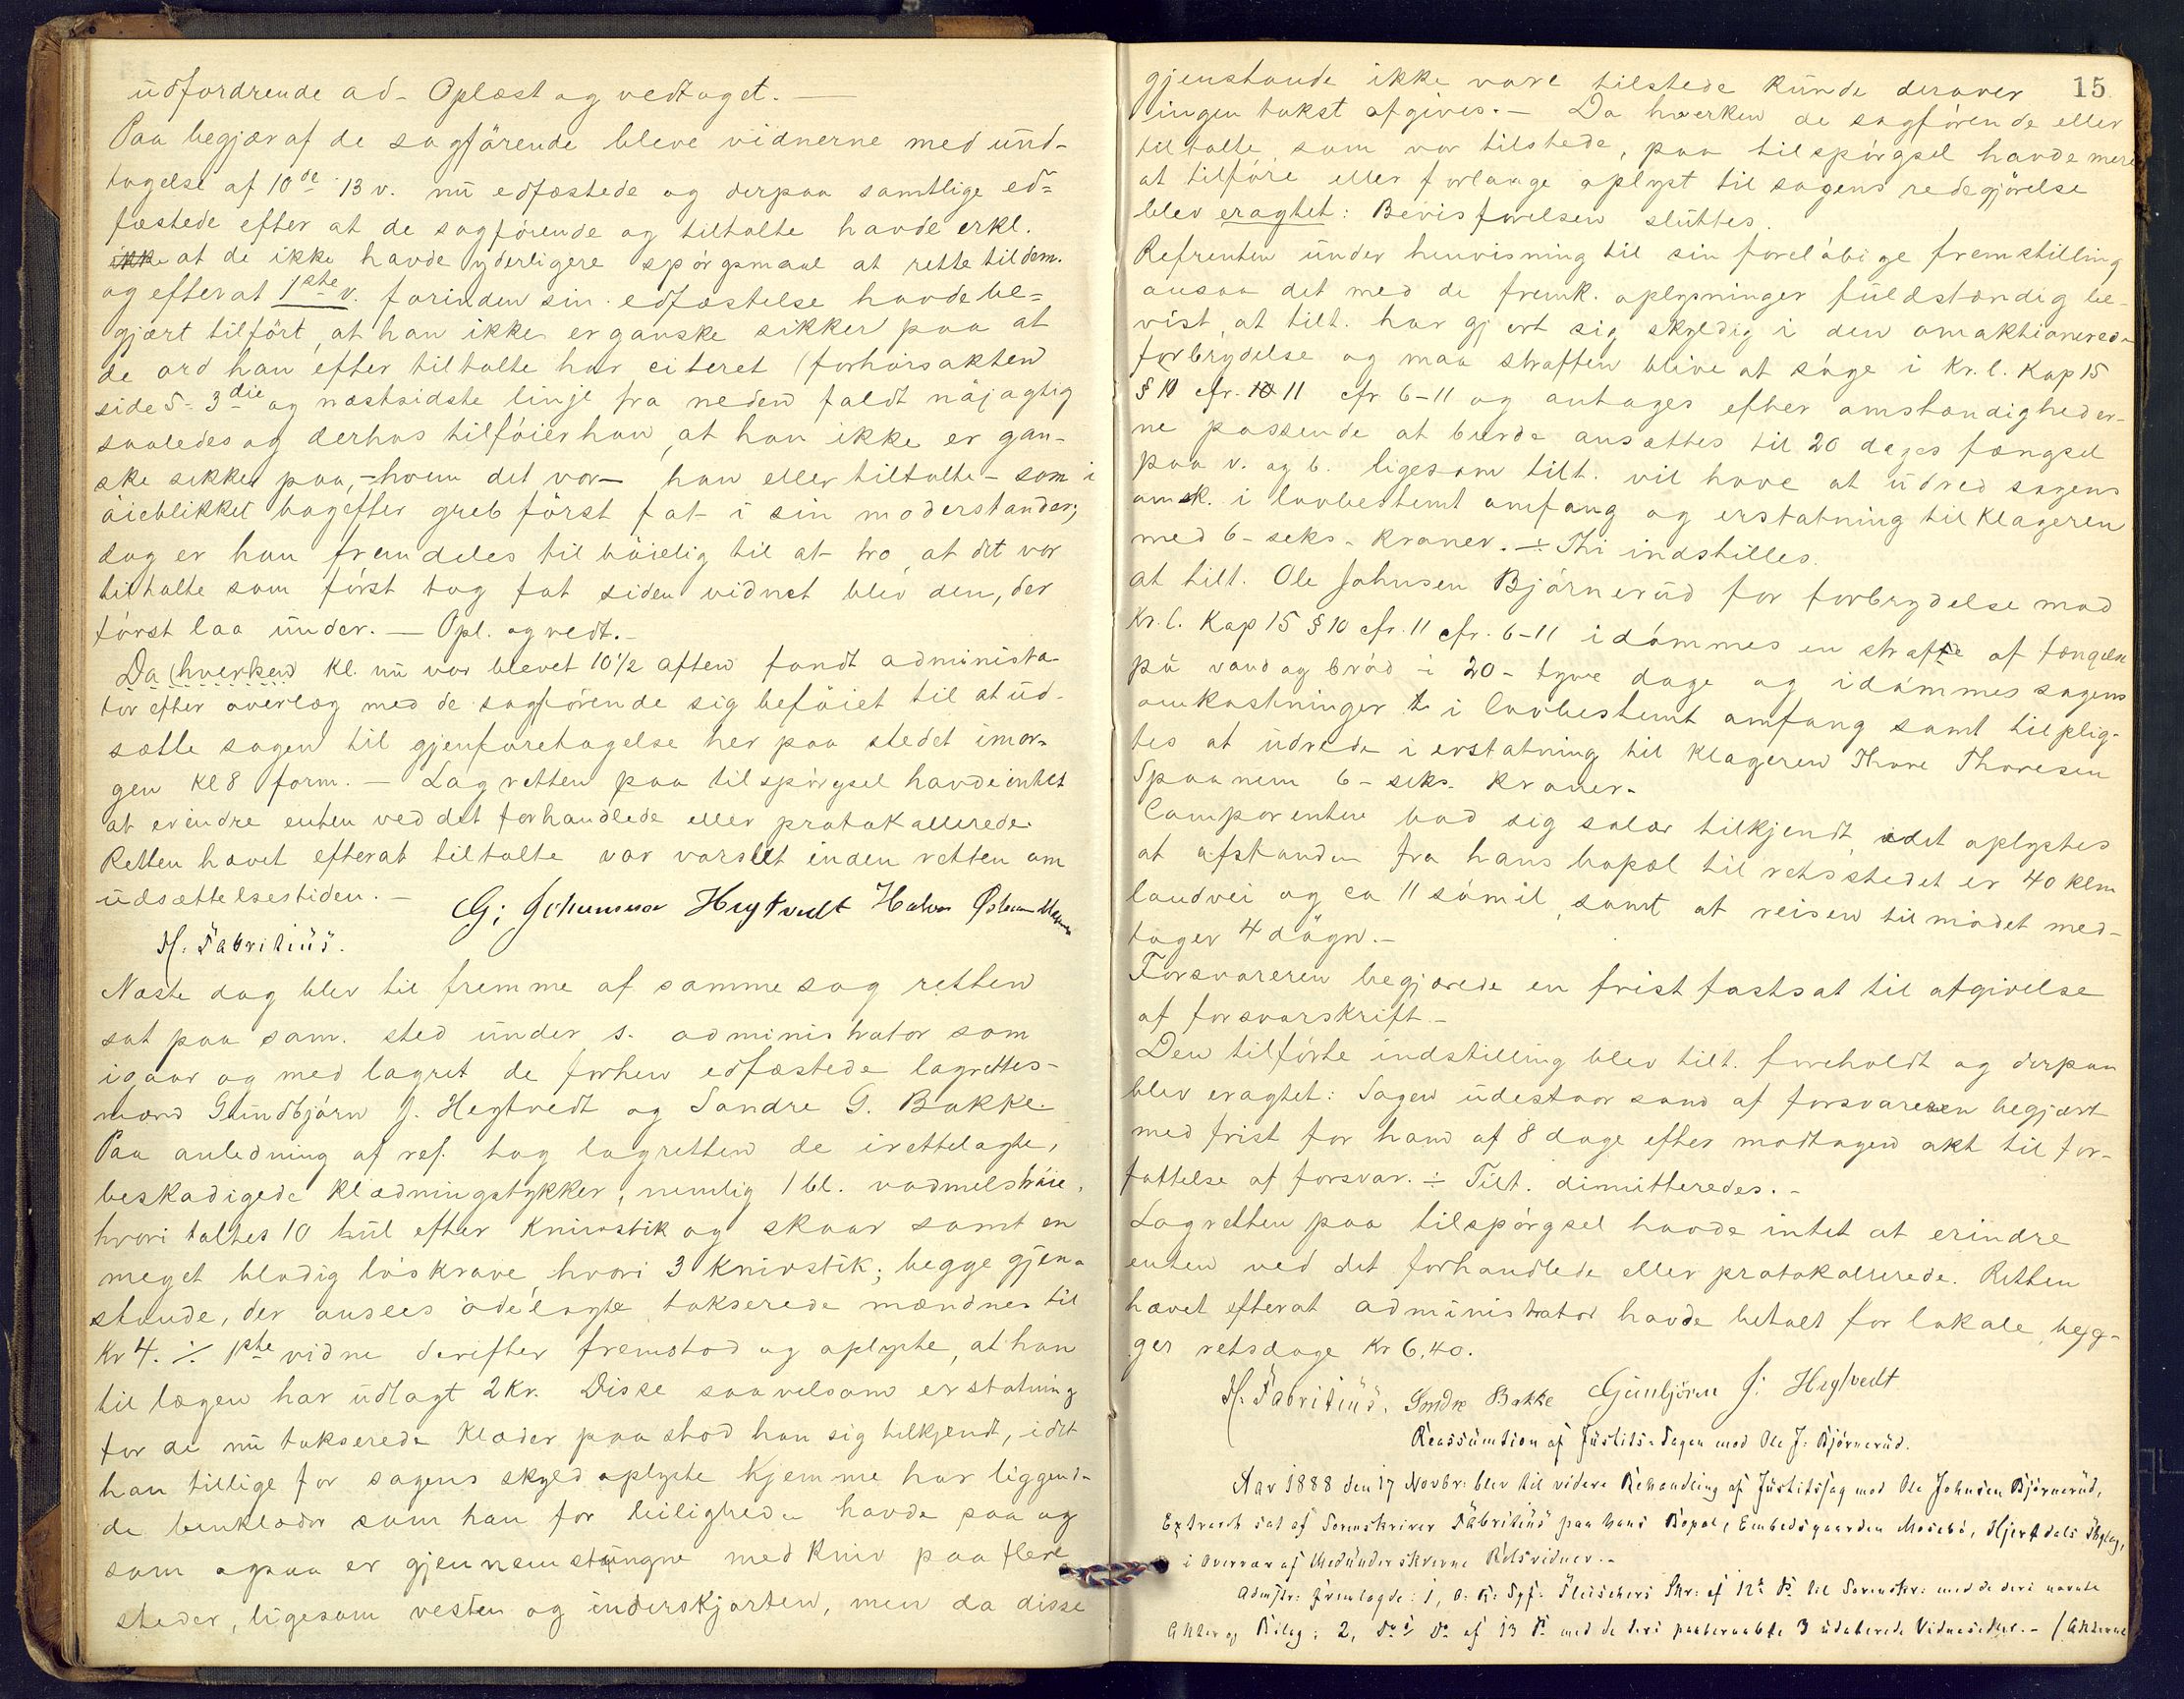 udfordrende ad- Oplæst og vedtaget. —
Paa begjær af de sagførende bleve vidnerne med und-
tagelse af 10de 13 v. nu edfæstede og derpaa samtlige ed=
fæstede efter at de sagførende og tiltalte havde erkl.
ikke at de ikke havde yderligere spørgsmaal at rette til dem.
og efterat 1ste v. forinden sin edfæstelse havde be=
gjært tilført, at han ikke er ganske sikker paa at
de ord han efter tiltalte har citeret (forhørsakten
side 5- 3die og næstsidste linje fra neden faldt nøjagtig
saaledes og derhos tilføier han, at han ikke er gan-
ske sikker paa, - hvem det var - han eller tiltalte - som i
øieblikket bagefter greb først fat i sin moderstander;
dog er han fremdeles tilbøielig til at tro, at det var
tiltalte som først tog fat siden vidnet blev den, der
først laa under. — Opl. og vedt. -
Da (hverken kl. nu var blevet 10 1/2 aften fandt administra-
tor efter overlæg med de sagførende sig beføiet til at ud-
sætte sagen til gjenforetagelse her paa stedet imor-
gen kl 8 form. — Lagretten paa tilspørgsel havde intet
at erindre enten ved det forhandlede eller protokallerede.
Retten hævet efterat tiltalte var varslet inden retten om
udsættelsestiden. -
G: Johnsen Hegtvedt
H. Fabritius.
Næste dag blev til fremme af samme sag retten
sat paa sam. sted under s. administrator som
igaar og med lagret de forhen edfæstede lagrettes-
mænd Gundbjørn J. Hegtvedt og Sondre G. Bakke.
Paa anledning af ref. tog lagretten de irettelagte,
beskadigede klædningstykker, nemlig 1 bl. vadmelstrøie,
hvori taltes 10 hul efter knivstik og skaar samt en
meget blodig løskrave, hvori 3 knivstik; begge gjen-
stande, der ansees ødelagte takserede mændnes til
Kr 4. ÷ 1ste vidne derefter fremstod og oplyste, at han
til lægen har udlagt 2 Kr. Disse saavelsom erstatning
for de nu takserede klæder paastod han sig tilkjendt, idet
han tillige for sagens skyld oplyste hjemme har liggend-
de benklæder som han for leiligheden havde paa og
som ogsaa er gjennemstungne med kniv paa flere
steder, ligesom vesten og underskjorten, men da disse
15.
gjenstande ikke vare tilstede kunde derover
ingen takst afgives. — Da hverken de sagførende eller
tiltalte, som var tilstede, paa tilspørgsel havde mere
at tilføre eller forlange oplyst til sagens redegjørelse
blev eragtet: Bevisførelsen sluttes.
Refrenten under henvisning til sin foreløbige fremstilling
ansaa det med de fremk. oplysninger fuldstændig be-
vist, at tilt. har gjort sig skyldig i den omaktionered-
forbrydelse og maa straffen blive at søge i Kr. l. Kap 15
§ 10 cfr. 10 11 cfr 6-11 og antages efter omstændigheder-
ne passende at burde ansættes til 20 dages fængsel
paa v. og b. ligesom tilt. vil have at udred sagens
omk. i lovbestemt omfang og erstatning til klageren
med 6 - seks - kroner. ÷ Thi indstilles.
at tilt. Ole Johnsen Bjørnerud for forbrydelse mod
Kr. l. Kap 15 § 10 cfr. 11 cfr. 6-11 idømmes en straffe af fængelse
på vand og brød i 20 - tyve dage og idømmes sagens
omkostninger i lovbestemt omfang samt tilplig-
tes at udrede i erstatning til klageren Thore Thoresen
Spaanem 6 - seks - kroner.
Comparenten bad sig salær tilkjendt, idet oplystes
at afstanden fra hans bopæl til retsstedet er 40 klm
landvei og ca 11 sømil, samt at reisen til mødet med-
tager 4 døgn. -
Forsvareren begjærede en frist fastsat til afgivelse
af forsvarskrift -
Den tilførte indstilling blev tilt. foreholdt og derpaa
blev eragtet: Sagen udestaar som af forsvareren begjært
med frist for ham af 8 dage efter modtagen akt til for-
fattelse af forsvar. ÷ Tilt. dimitteredes. -
Lagretten paa tilspørgsel havde intet at erindre
enten ved det forhandlede eller protokallerede. Retten
hævet efterat administrator havde betalt for lokale begg-
ges retsdage Kr 6,40.
H. Fabritius. Sondre Bakke Gunbjørn J: Hegtvedt
Reassumtion af Justits-Sagen mod Ole J: Bjørnerud.
Aar 1888 den 17 Novbr: blev til videre Behandling af Justitssag mod Ole Johnsen Bjørnerud,
Extraret sat af Sorenskriver Fabritius paa hans Bopæl, Embedsgaarden Mosebø, Hjertdals Thglag,
i Overvær af Medunderskrevne Retsvidner. -
Admstr: fremlagde: 1, O. R: Sgf: Fleischers Skr: af 12te ds. til Sorenskr: med de deri nævnte
Akter og Bilag; 2, do: ds af 13 ds med de deri paaberaabte 3 udaterede Vidnesedler. - (Akterne